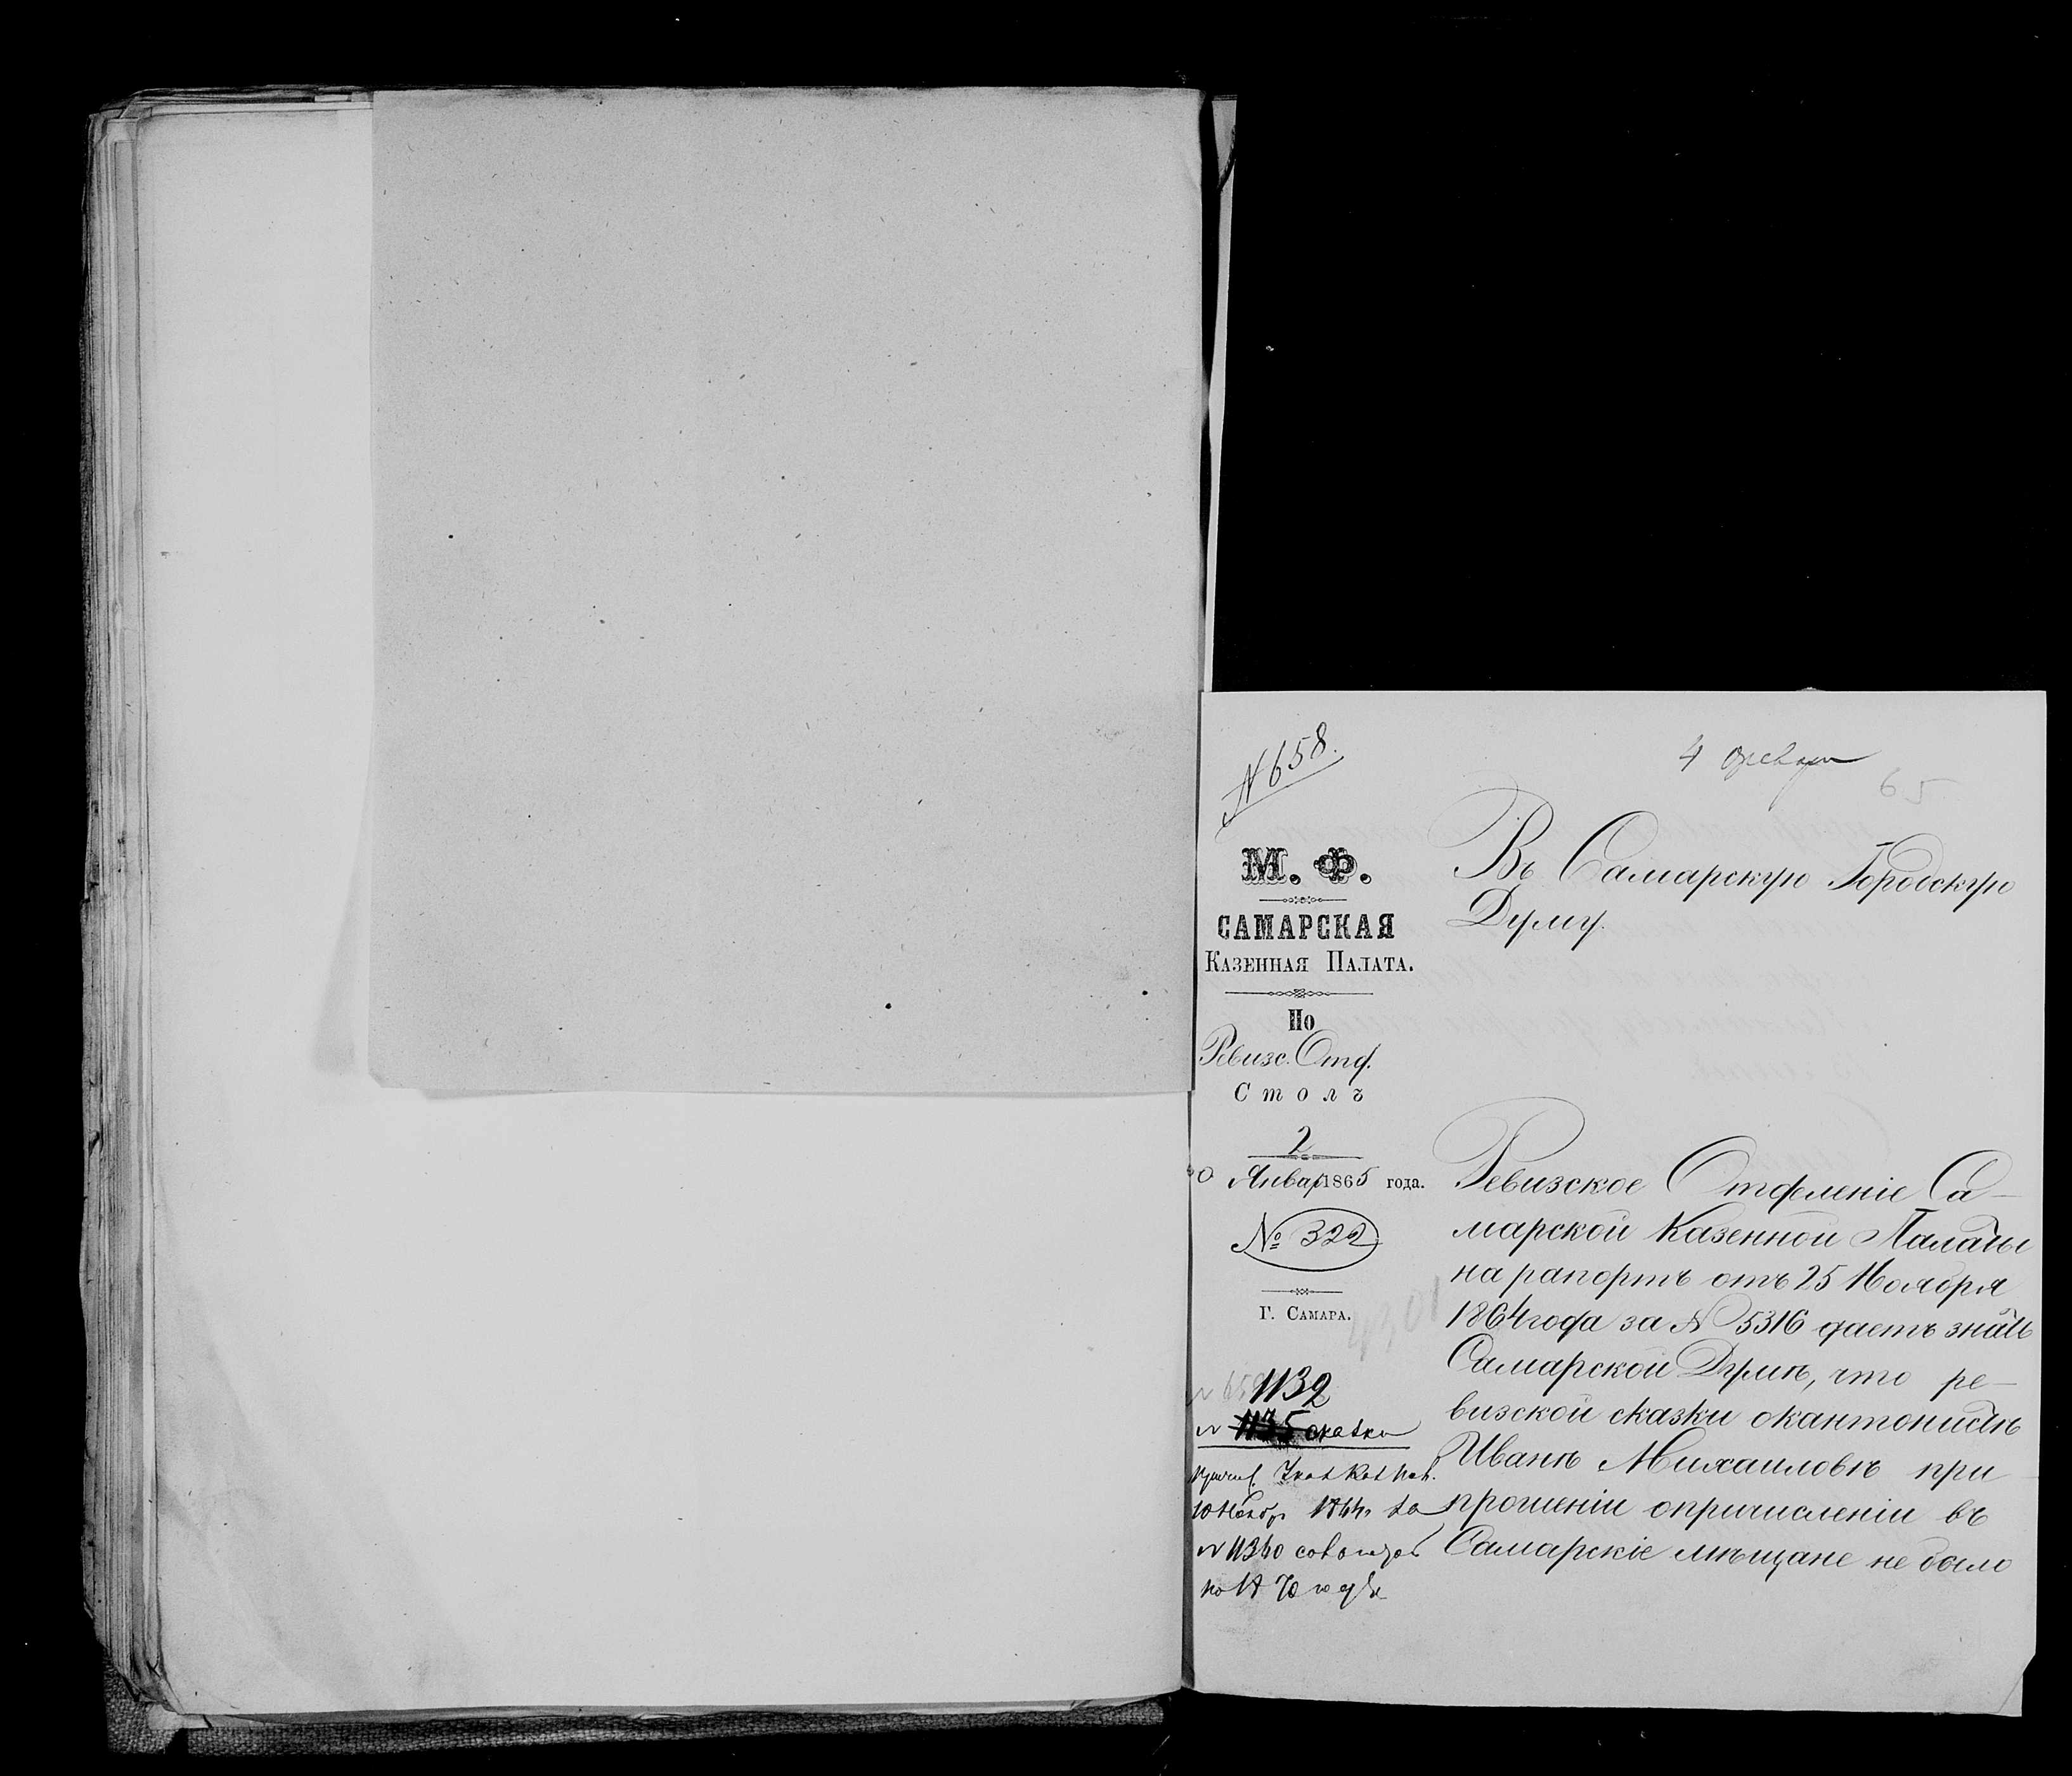 N 658.
4 февраля
65
М. Ф.
САМАРСКАЯ
КАЗЕННАЯ ПАЛАТА.
По
Ревизс. Отд.
Столъ
2
Январ 1865 года.
№ 322
Г. САМАРА.
1132
N 1135 сказка
10 Ноябр 1864 за
N 11340 со
по 1870 годъ
Въ Самарскую Городскую
Думу.
Ревизское Отдѣленіе Са-
марской Казенной Палаты
на рапортъ отъ 25 Ноября
1864 года за N 5316 даетъ знать
Самарской Думѣ, что ре-
визской сказки окантонистѣ
Иванѣ Михаиловѣ при
прошеніи опричисленіи въ
Самарскіе мѣщане не было